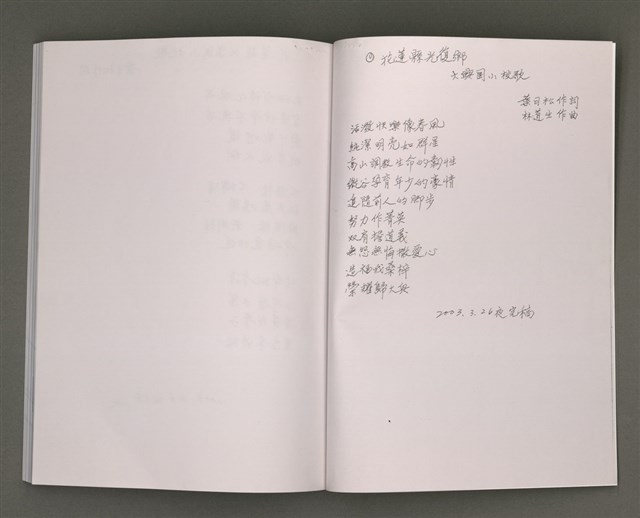 ⊙ 花蓮縣光復鄉
大興國小校歌
葉日松作詞
林道生作曲
活潑快樂像春風
純潔明亮如群星
高山調教生命的韌性
微谷孕育年少的豪情
追隨前人的腳步
努力作菁英
双肩擔道義
無怨無悔撒愛心
造福我桑梓
榮耀歸大興
2003.3.26夜完稿